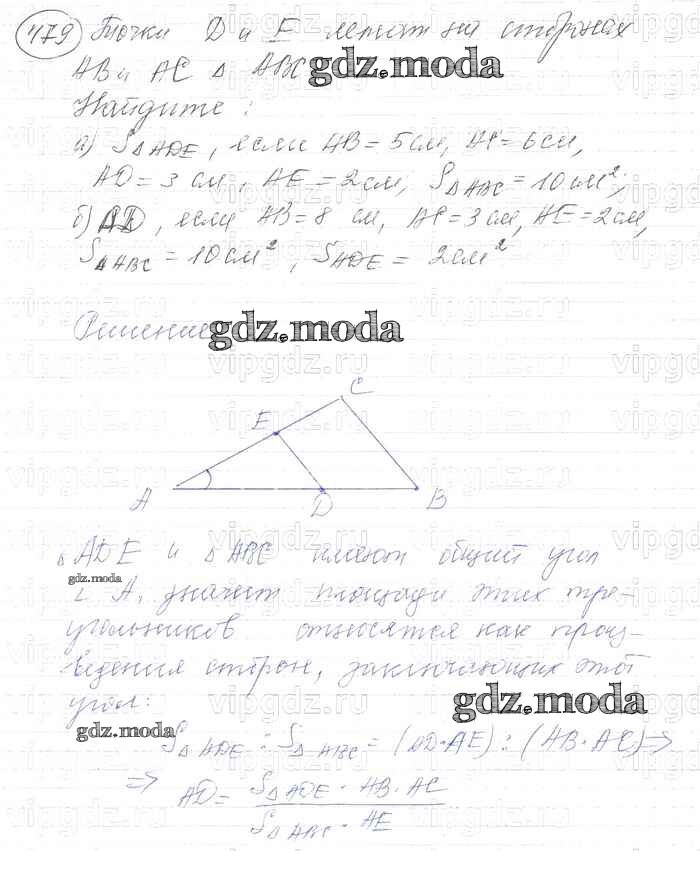 479 Точки D и E лежат на сторонах
AB и AC Δ ABC
gdz.moda
Найдите:
а) S_ΔADE, если AB = 5 см, AC = 6 см,
AD = 3 см, AE = 2 см, S_ΔABC = 10 см²,
б) AD, если AB = 8 см, AC = 3 см, AE = 2 см,
S_ΔABC = 10 см², S_ADE = 2 см²
Решение
gdz.moda
vipgdz.ru
C
E
A D B
Δ ADE и Δ ABC имеют общий угол
gdz.moda
∠ A, значит площади этих тре-
угольников относятся как произ-
ведения сторон, заключающих этот
угол:
gdz.moda
gdz.moda
S_ΔADE : S_ΔABC = (AD·AE) : (AB·AC) =>
=> AD = S_ΔADE · AB · AC
S_ΔABC · AE